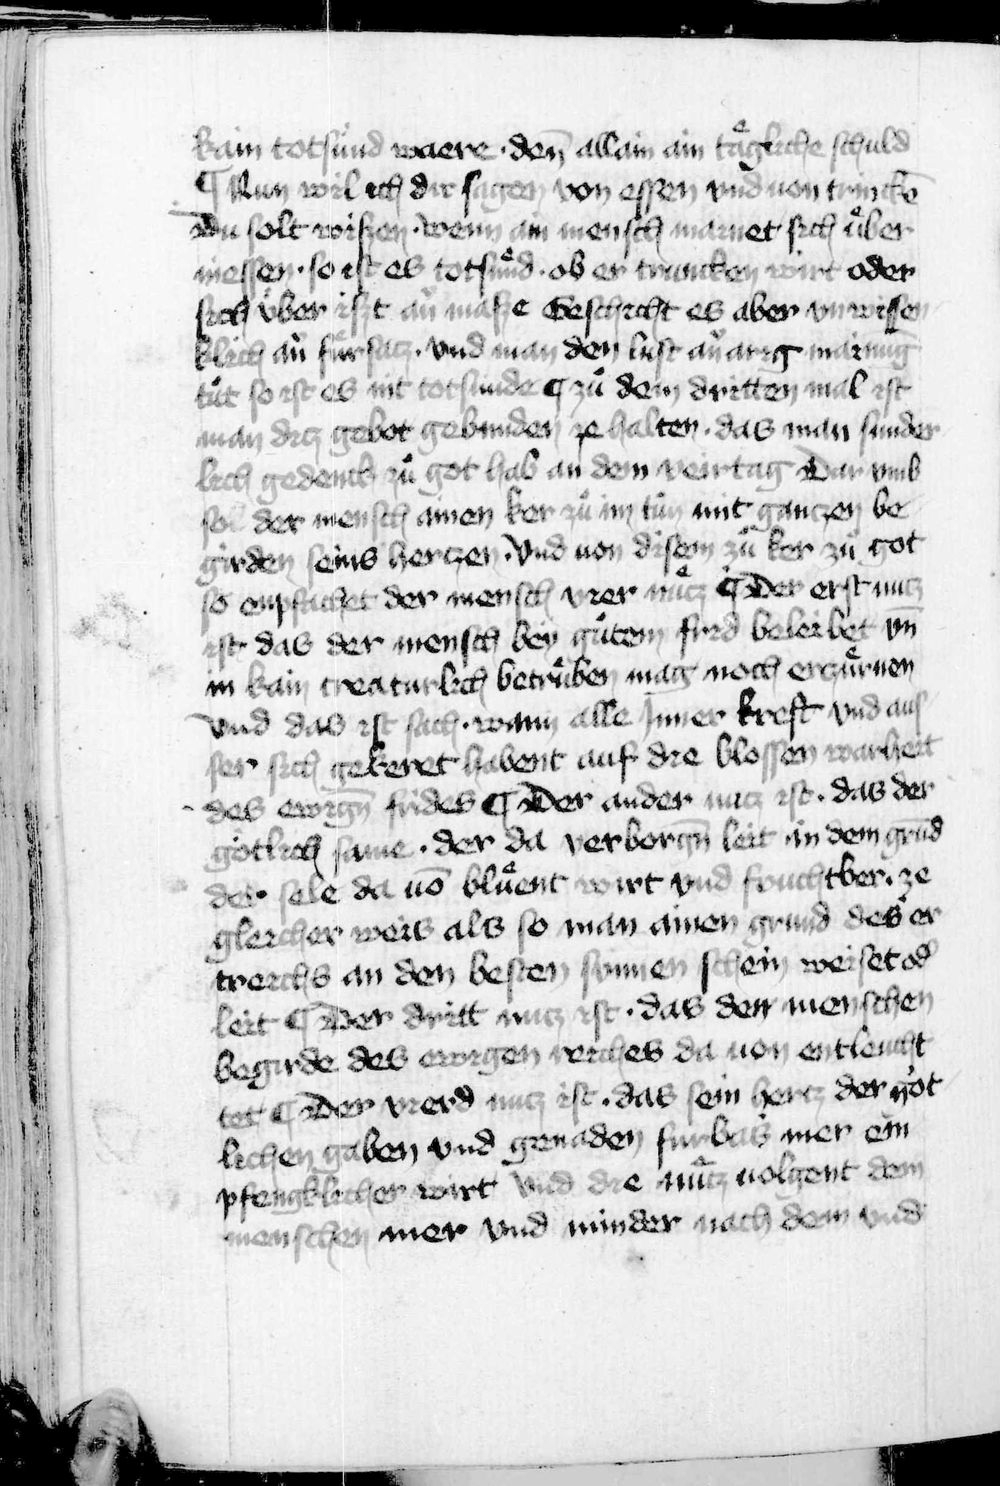 kain totsünd waere · den̄ allain ain taͤgliche schuld
¶ Nun wil ich dir sagen von essen vnd uon trinckē
Du solt wiszen · wenn ain mensch mainet sich uͤber
messen · so ist es totsuͤnd · ob er truncken wirt oder
sich vͤber iszt an̄ masze Geschicht es aber vnwissen
klich an̄ fuͤrsatz · vnd man den lust an̄ arig mainūg
tuͦt so ist es nit totsünde ¶ zuͦ dem dritten mal ist
man ditz gebot gebunden ze halten · das man sunder
lich gedenck zuͦ got hab an dem veirtag Dar vmb
sol der mensch ainen ker zuͦ im tuͦn mit gantzen be
girden seins hertzen · Vnd uon disem zuͦ ker zuͦ got
so enpfachet der mensch vier nuͤtz ¶ Der erst nutz
ist das der mensch bey guͦtem frid beleibet vn̄
in kain creaturlich betruͤben mag noch erzuͤrnen
Vnd das ist sach · wann alle Inner kreft vnd aus
ser sich gekeret habent auf die blossen warheit
des ewign̄ frides ¶ Der ander nutz ist · das der
götlich same · der da verborgn̄ leit in dem grūd
der sele da uō bluͤent wirt vnd fruchtber · ze
gleicher weis als so man ainen grund des er
treichs an den besten sunnen schein weiset od̄
leit ¶ Der dritt nutz ist · das den menschen
begirde des ewigen reiches da uon entleucht
tet ¶ Der vierd nutz ist · das sein hertz der got
lichen gaben vnd genaden furbas mer ein
pfengklicher wirt vnd die nuͤtz uolgent dem
menschen mer vnd minder nach dem vnd